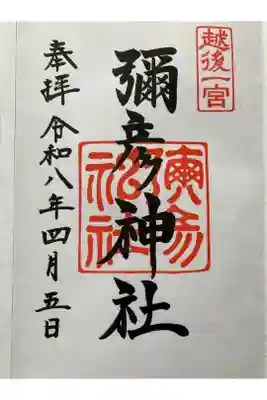 越後一宮
彌彦神社
奉拝 令和八年四月五日